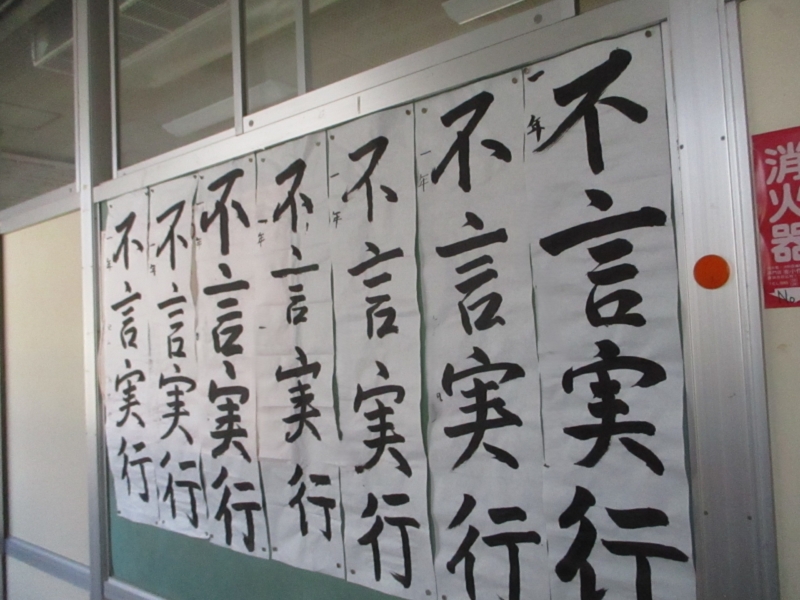 一年
不言実行
一年
不言実行
一年
不言実行
一年
不言実行
不言実行
一年
不言実行
一年
不言実行
消火器
No